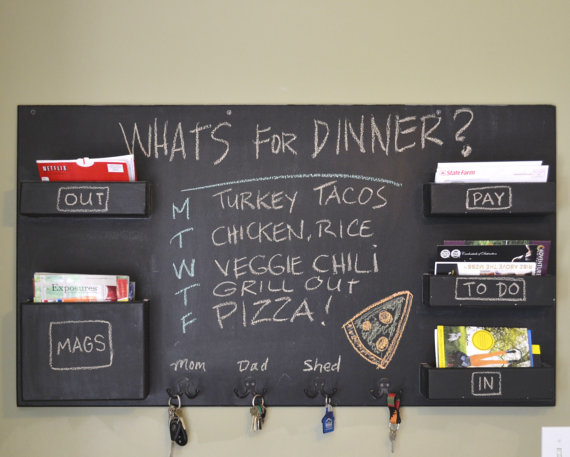 WHATS FOR DINNER?
NETFLIX
OUT
Exposures
MAGS
M TURKEY TACOS
T CHICKEN, RICE
W VEGGIE CHILI
T GRILL OUT
F PIZZA!
Mom Dad Shed
State Farm
PAY
TO DO
IN